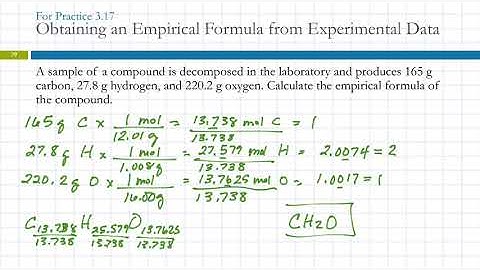 For Practice 3.17
Obtaining an Empirical Formula from Experimental Data
A sample of a compound is decomposed in the laboratory and produces 165 g
carbon, 27.8 g hydrogen, and 220.2 g oxygen. Calculate the empirical formula of
the compound.
165g C × 1 mol / 12.01 g = 13.738 mol C / 13.738 = 1
27.8g H × 1 mol / 1.008g = 27.579 mol H / 13.738 = 2.0074 = 2
220.2g O × 1 mol / 16.00g = 13.7625 mol O / 13.738 = 1.0017 = 1
C 13.738/13.738 H 25.579/13.738 O 13.7625/13.738
CH2O